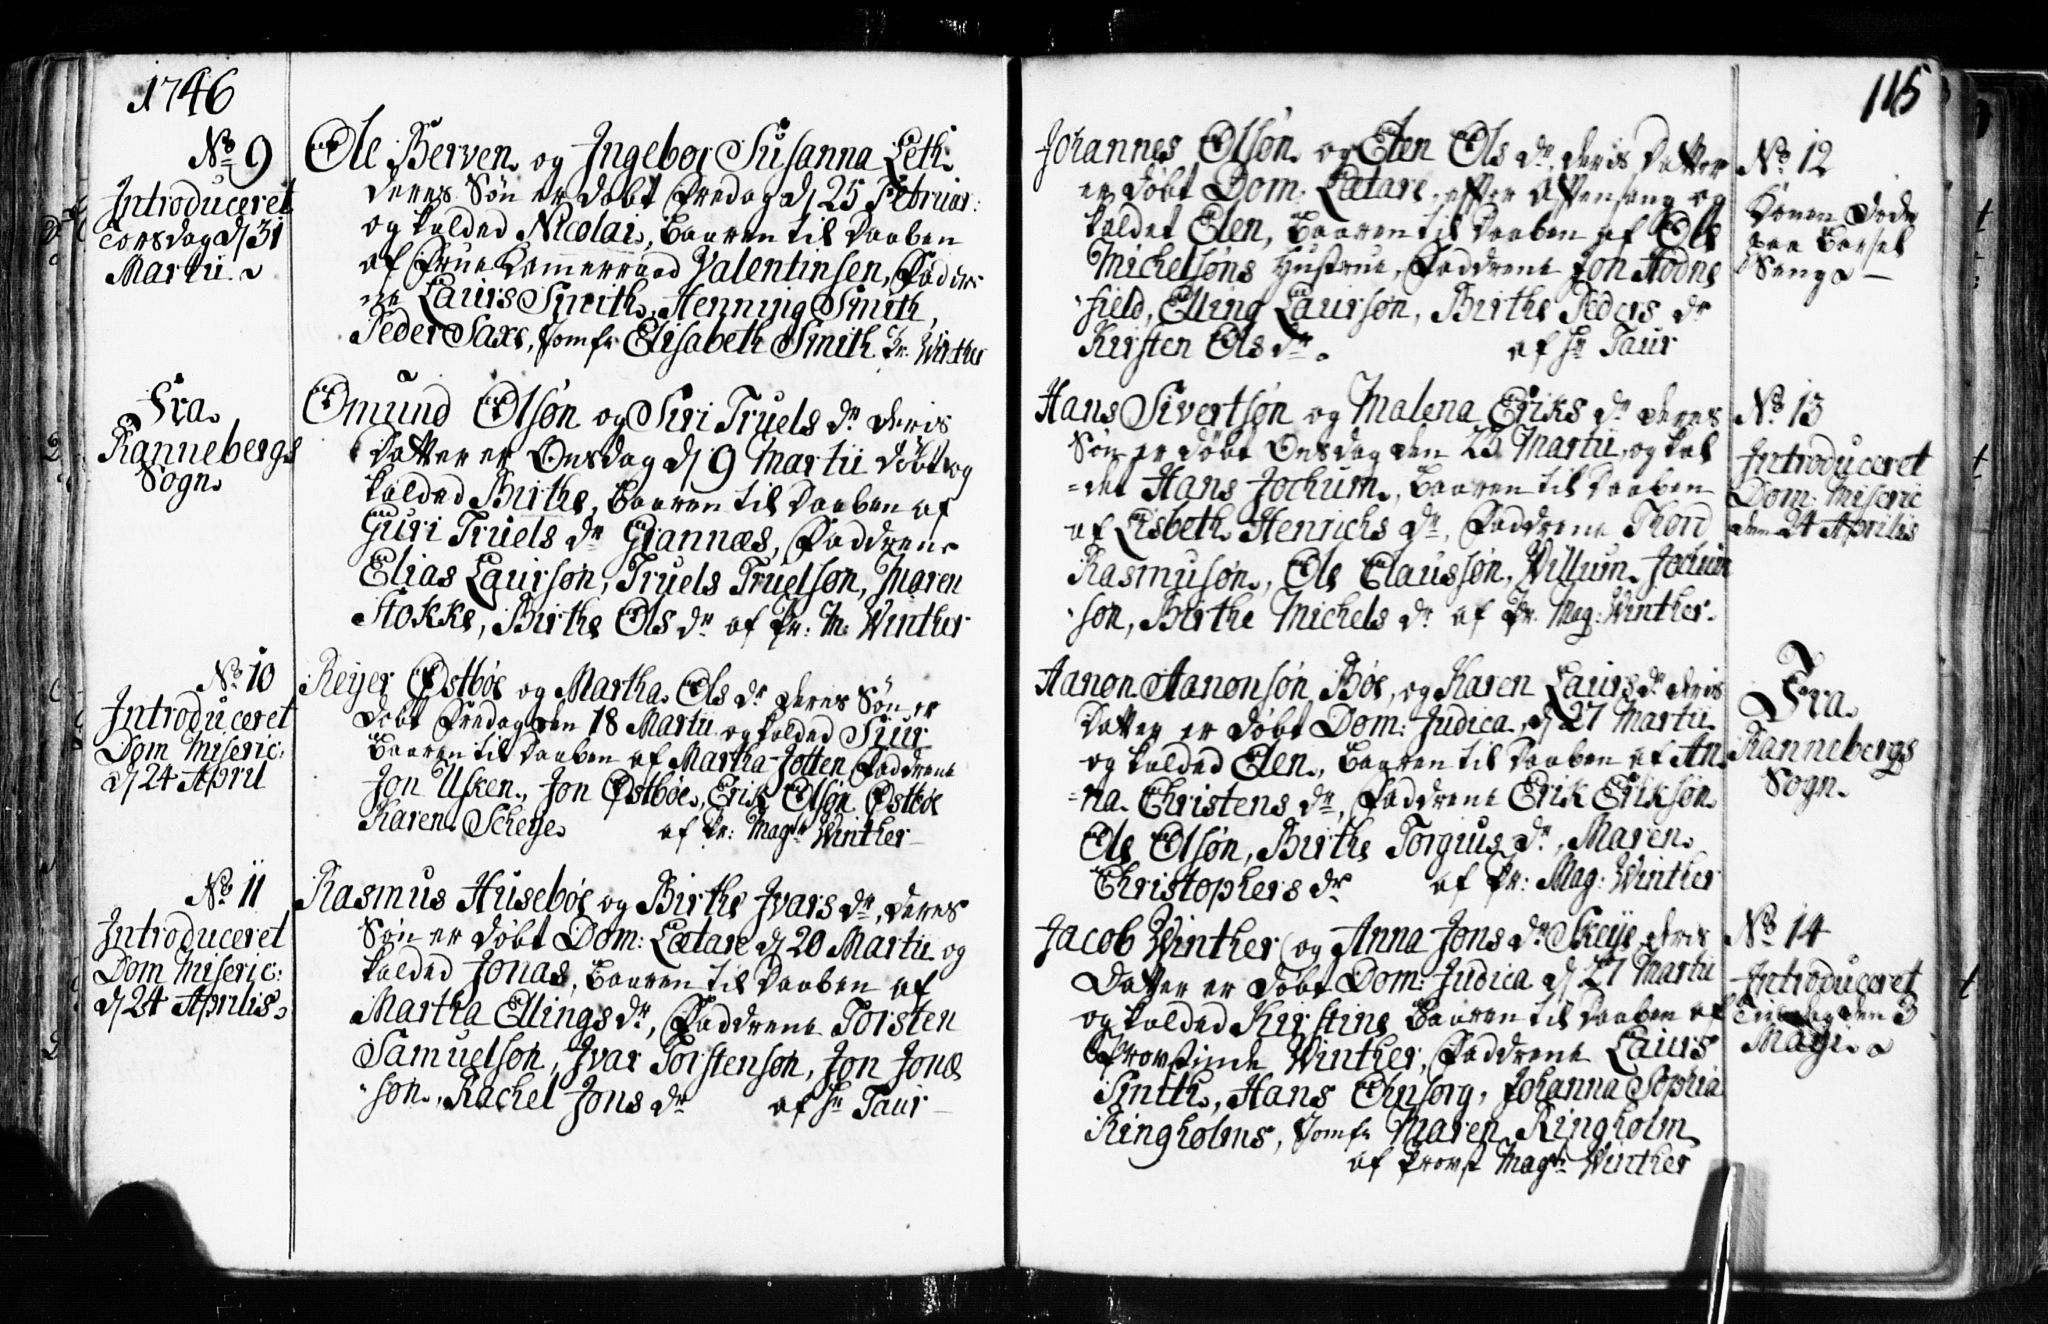 1746
No 9
Introduceret
Torsdag d 31
Martii
Ole Berven og Ingebor Susanna Leth
deres Søn er døbt Fredag d 25 Februar:
og kalded Nicolai, baaren til Daaben
af Frue Kamerraad Valentinsen, Faddre
ne Laurs Smith, Henning Smith,
Peder Saxe, Jomfr Elisabeth Smith Pr. Winther
Fra
Rannebergs
Sogn
Omund Olsøn og Siri Truels dr deris
Datter er Onsdag d 9 Martii døbt og
kalded Birthe, baaren til Daaben af
Guri Truels dr Giannæs, Faddrene
Elias Laursøn, Truels Truelsøn, Maren
Stokke, Birthe Ols dr af Pr: M: Winther
No 10
Introduceret
Dom Miseric:
d 24 April
Reijer Østbøe og Martha Ols dr deres Søn er
døbt Fredag den 18 Martii og kalded Siur
baaren til Daaben af Martha Jotten Faddrene
Jon Usken, Jon Østbøe, Erik Olsøn Østbøe
Karen Scheije af Pr: Magr Winther
No 11
Introduceret
Dom Miseric:
d 24 Aprilis
Rasmus Husebøe og Birthe Ivars dr, deres
Søn er døbt Dom: Lætare d 20 Martii og
kalded Jonas, baaren til Daaben af
Martha Ellings dr, Faddrene Torsten
Samuelsøn, Ivar Torstensøn, Jon Jonæ
søn, Rachel Jons dr af Hr Taur
115
Johannes Olsøn og Elen Ols dr deris Datter
er døbt Dom: Lætare, efter Aftensang og
kaldet Elen, baaren til Daaben af Ole
Michelsøns Hustrue, Faddrene Jon Hodne
field, Elling Laursøn, Birthe Peders dr
Kirsten Ols dr. af Hr Taur
No 12
Konen døde
paa Barsel
Seng
Hans Sivertsøn og Malena Eriks dr deres
Søn er døbt Onsdag den 23 Martii, og kal
det Hans Jochum, baaren til Daaben
af Lisbeth Henrichs dr, Faddrene Thord
Rasmusøn, Ole Claussøn, Willum Jochum
søn, Birthe Michels dr af Pr. Mag: Winther.
No 13
Introduceret
Dom: Miseric
den 24 Aprilis
Aanon Aanonsøn Bøe, og Karen Laurs dr deris
Datter er døbt Dom: Judica, d 27 Martii
og kalded Elen, baaren til Daaben af An
na Christens dr, Faddrene Erik Eriksøn
Ole Olsøn, Birthe Torgius dr, Maren
Christophers dr af Pr: Mag: Winther
Fra
Rannebergs
Sogn
Jacob Winther og Anna Jons dr Skeije deris
Datter er døbt Dom: Judica d 27 Martii
og kalded Kirstine baaren til Daaben af
Provstinde Winther, Faddrene Laurs
Smith, Hans Ehnsorg, Johanna Sophia
Ringholms, Jomfr Maren Ringholm
af Provst Magr Winther
No 14
Introduceret
Tirsdag den 3
Maji